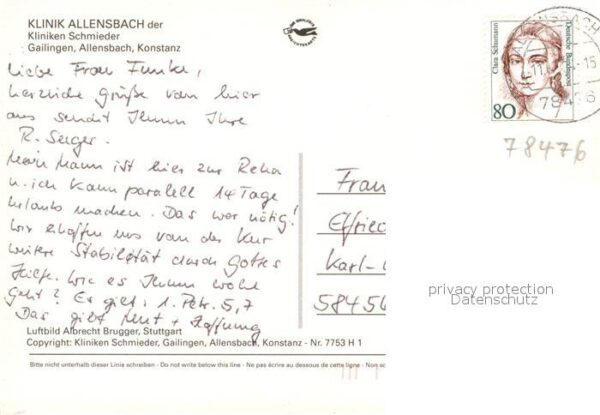 KLINIK ALLENSBACH der
Kliniken Schmieder
Gailingen, Allensbach, Konstanz
Clara Schumann
Deutsche Bundespost
80
-15
78476
78476
Liebe Frau Funke,
herzliche Grüße von hier
aus sendet Ihnen Ihre
R. Seeger.
Mein Mann ist hier zur Reha
u. ich kann parallel 14 Tage
Urlaub machen. Das war nötig!
Wir erhoffen uns von der Kur
weitere Stabilität durch Gottes
Hilfe. Wie es Ihnen wohl
geht? Es gilt: 1. Petr. 5,7
Das gibt Mut + Hoffnung
Frau
Elfried
Karl-
58456
privacy protection
Datenschutz
Luftbild Albrecht Brugger, Stuttgart
Copyright: Kliniken Schmieder, Gailingen, Allensbach, Konstanz - Nr. 7753 H 1
Bitte nicht unterhalb dieser Linie schreiben - Do not write below this line - Ne pas écrire au dessous de cette ligne - Non sc